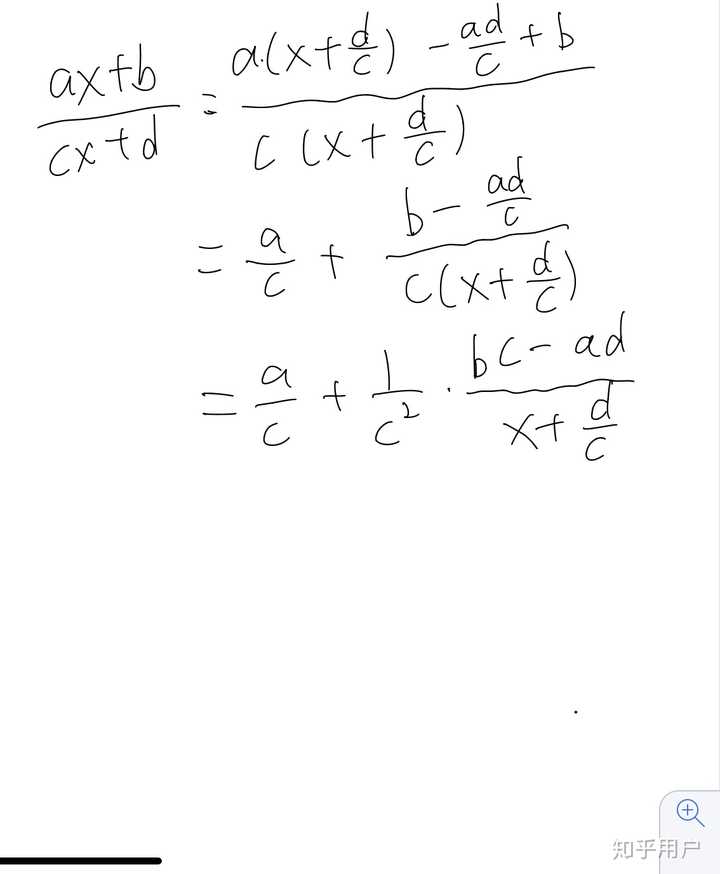 \frac{ax+b}{cx+d} = \frac{a.(x+\frac{d}{c}) - \frac{ad}{c} + b}{c(x+\frac{d}{c})}
= \frac{a}{c} + \frac{b - \frac{ad}{c}}{c(x+\frac{d}{c})}
= \frac{a}{c} + \frac{1}{c^2} \cdot \frac{bc - ad}{x+\frac{d}{c}}
知乎用户